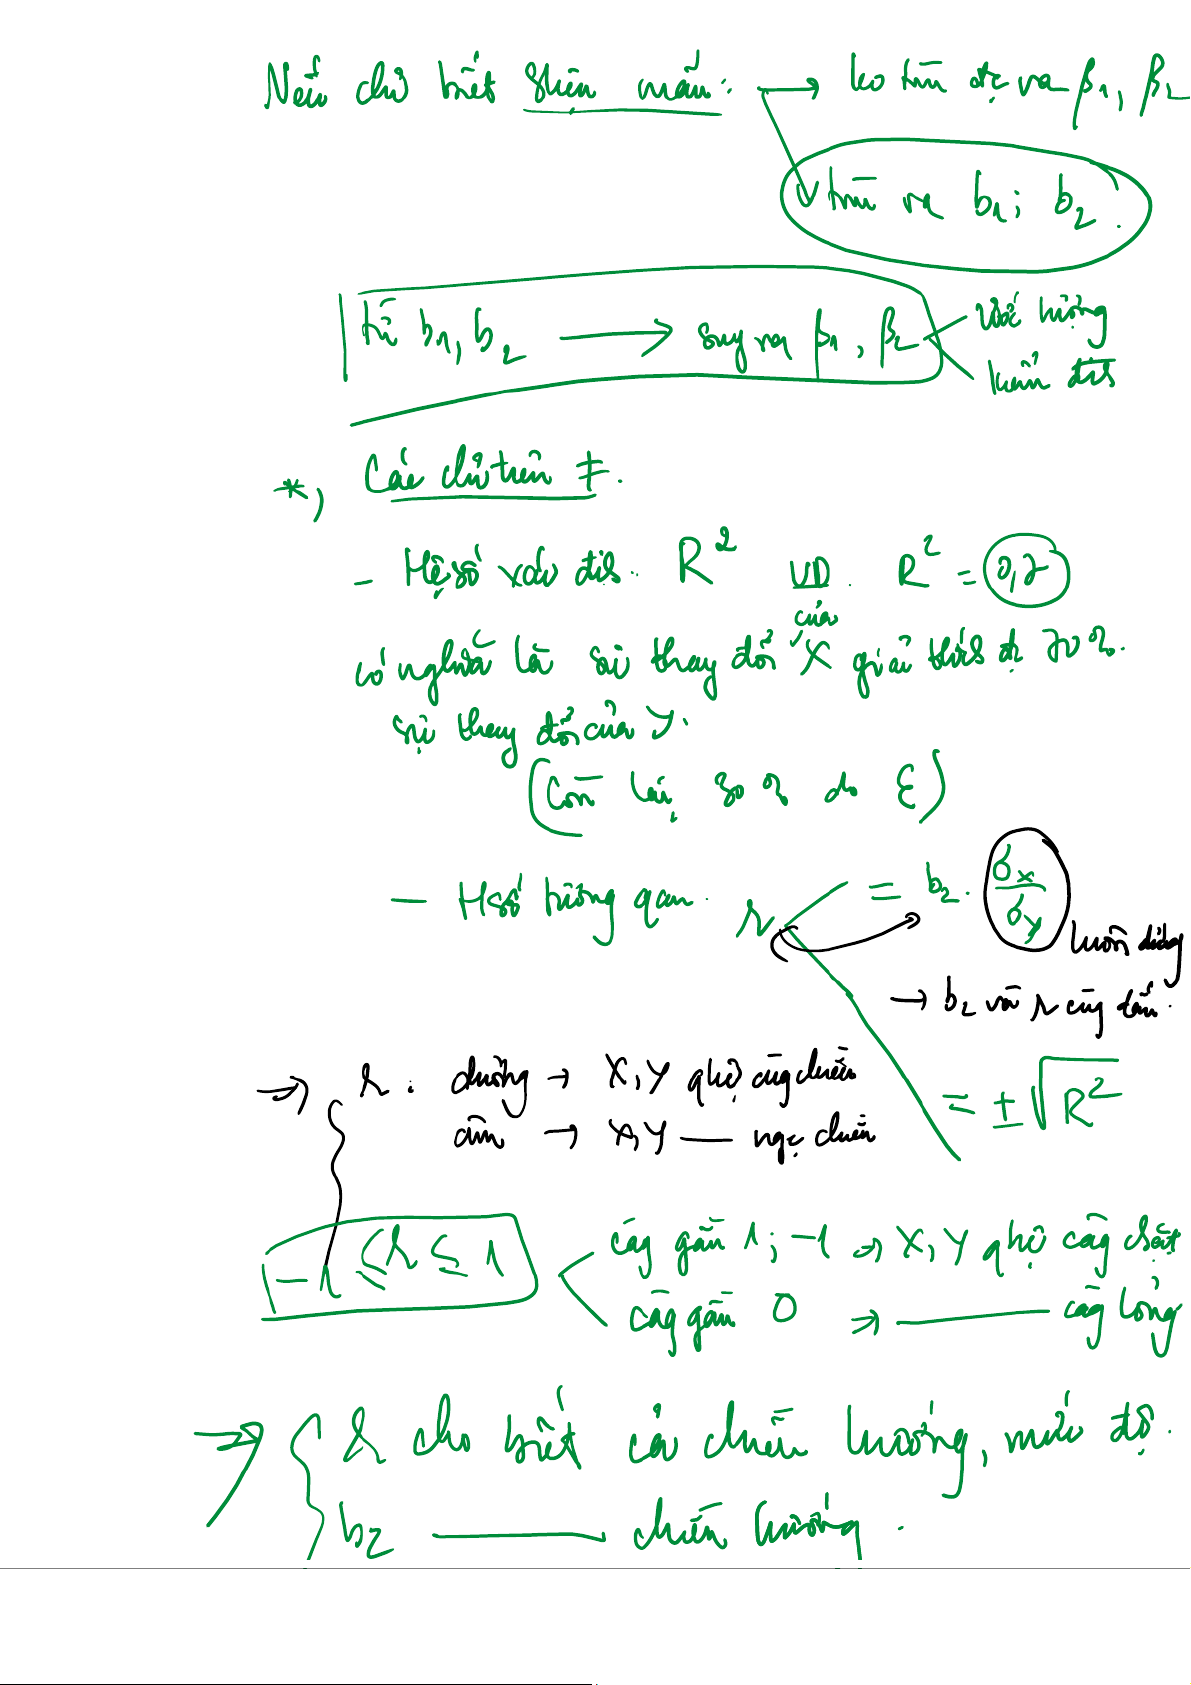 Nếu chỉ biết thiên mẫu: → ko tìm đc ra β₁, β₂
tìm ra b₁; b₂.
từ b₁, b₂ → suy ra β₁, β₂ ước lượng
kiểm định
*, Các chỉ tiêu ≠.
- Hệ số xác định. R² VD. R² = 0,7
có nghĩa là sự thay đổi của X giải thích đc 70%.
sự thay đổi của Y.
(Còn lại 30% do ε)
- Hsố tương quan. r = b₂. σx/σy
luôn dương
→ b₂ và r cùng dấu.
→ r: dương → X, Y qhệ cùng chiều
= ±√R²
âm → X, Y — ngc chiều
-1 ≤ r ≤ 1
càng gần 1; -1 → X, Y qhệ càng chặt
càng gần 0 → — càng lỏng
→ r cho biết cả chiều hướng, mức độ.
b₂ — chiều hướng.